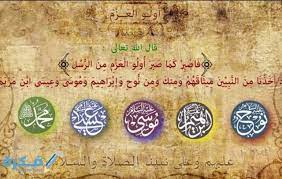 أولو العزم
قال الله تعالى :
﴿فاصبر كما صبر أولوا العزم من الرسل﴾
أخذنا من النبيين ميثاقهم ومنك ومن نوح وإبراهيم وموسى وعيسى ابن مريم
نوح إبراهيم موسى عيسى محمد
عليهم وعلى نبينا الصلاة والسلام
فكرة